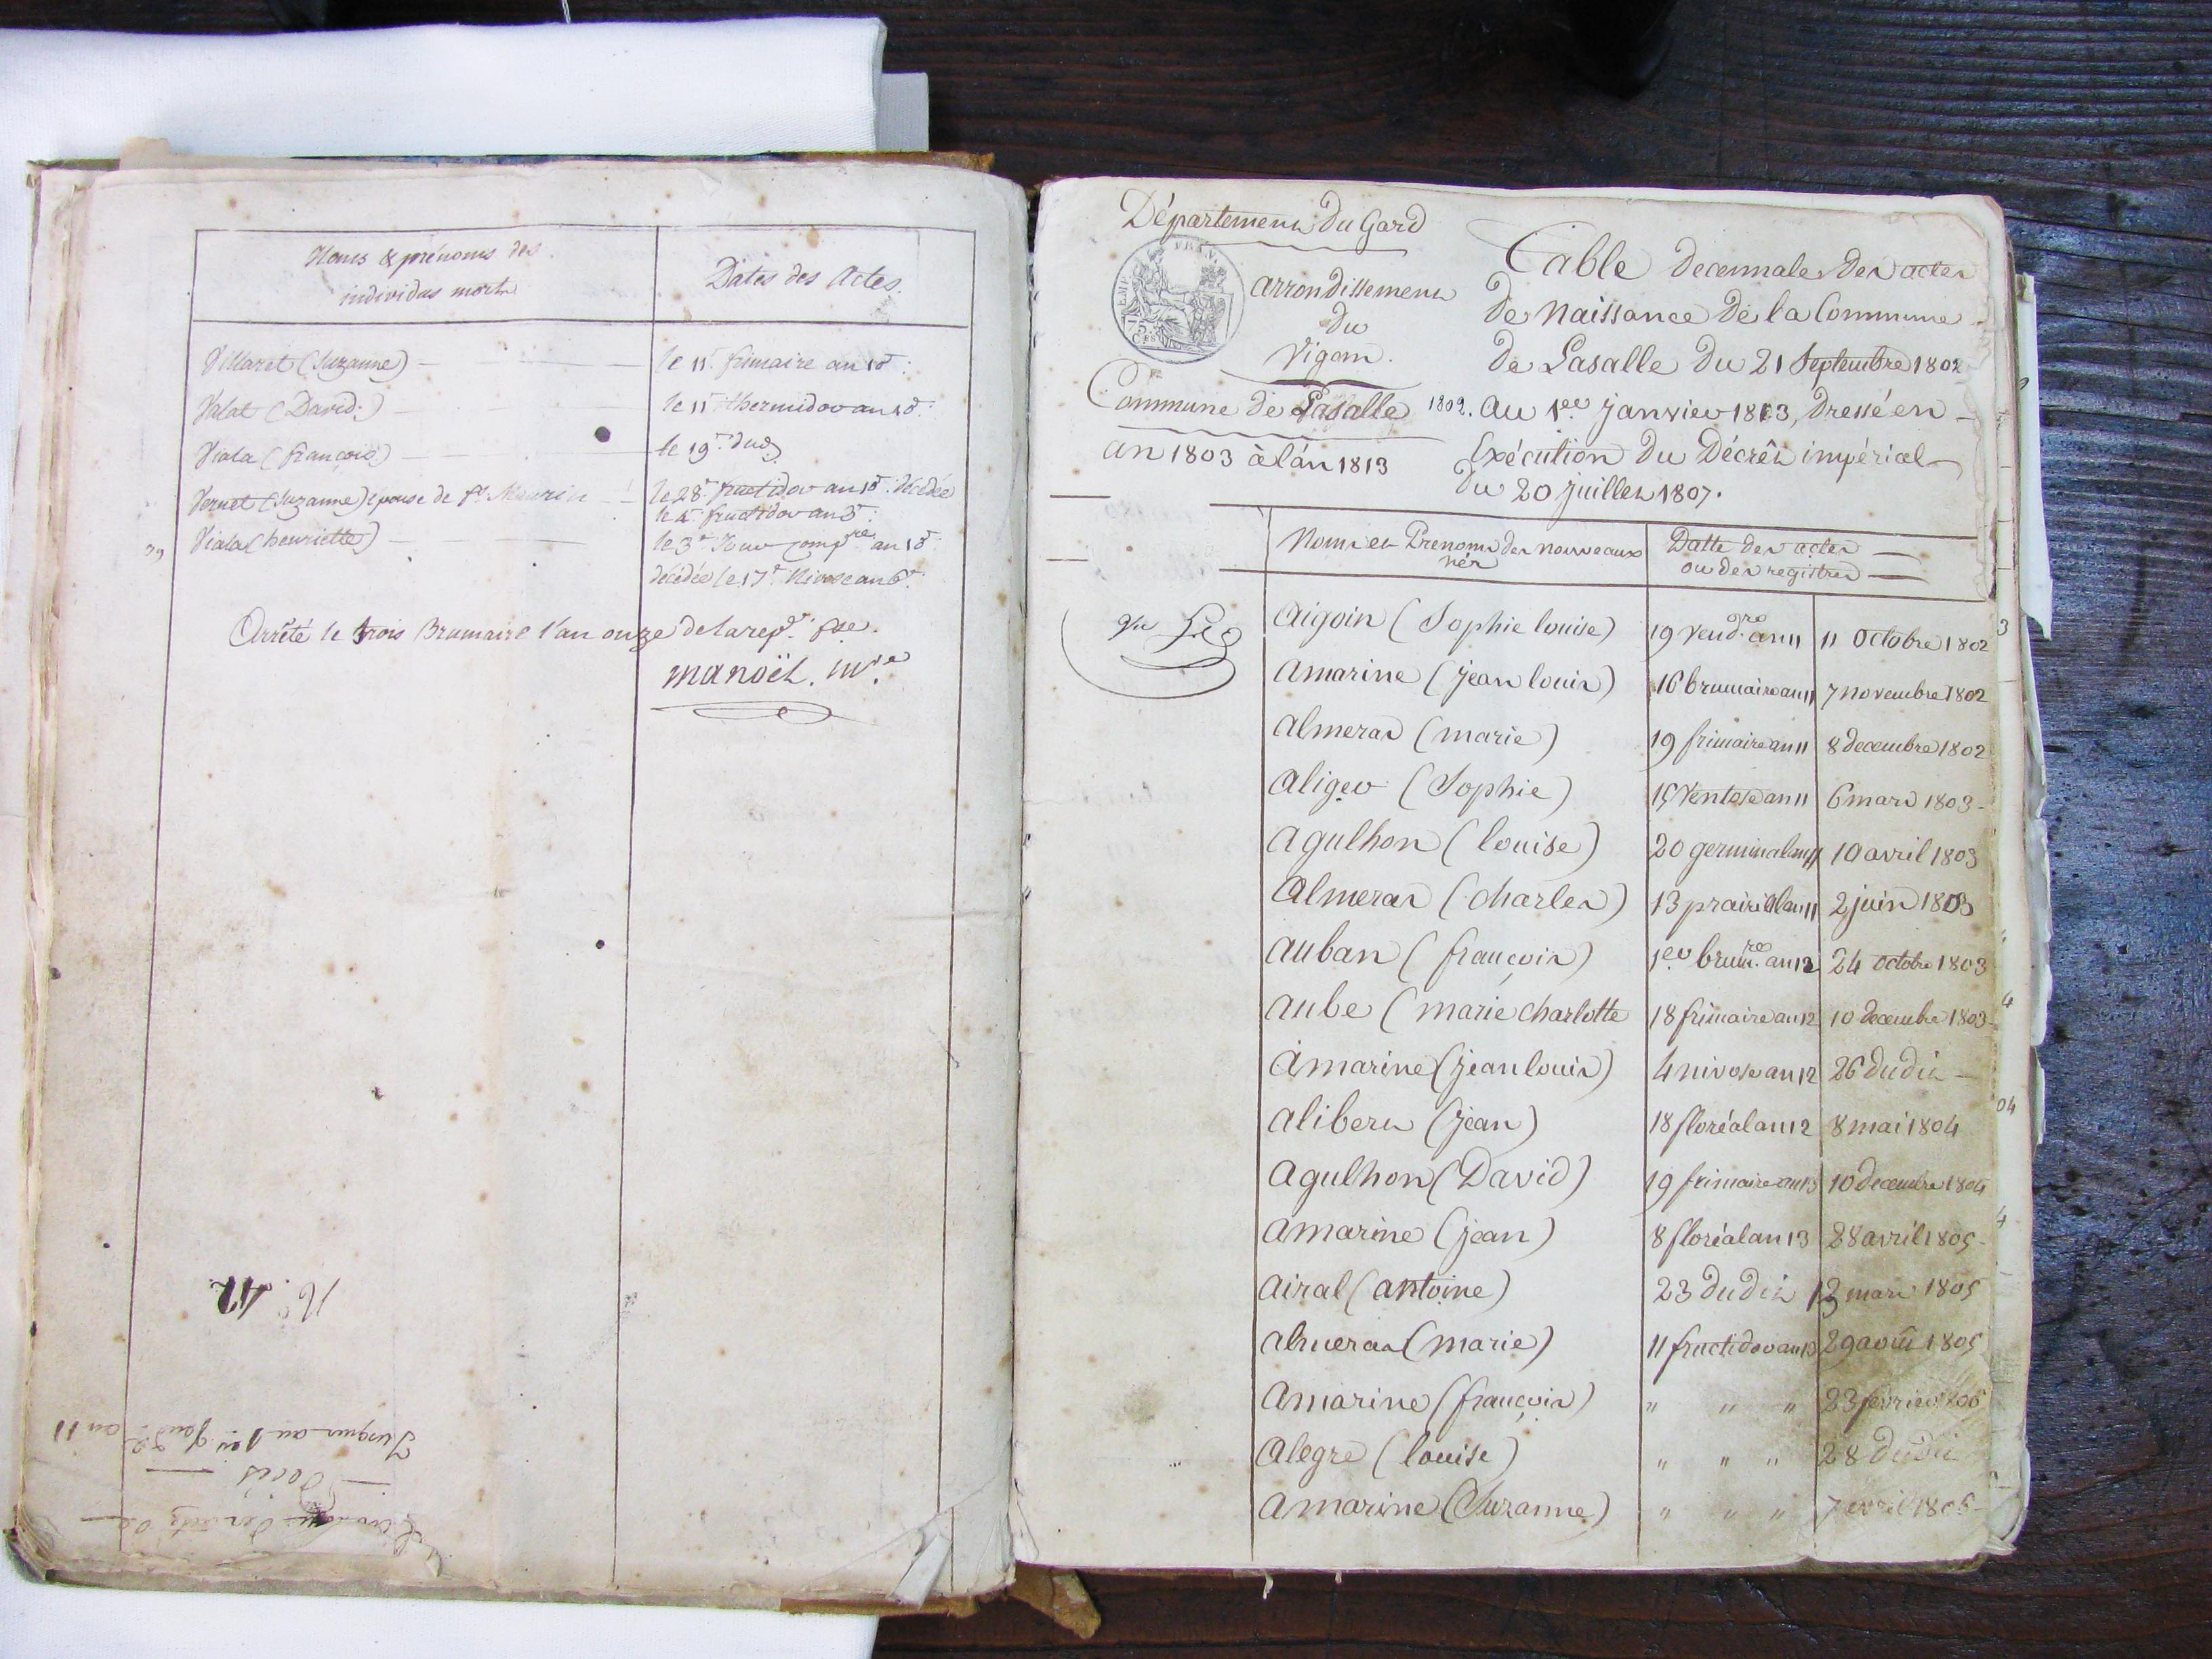 Noms & prénoms des
individus morts
Dates des Actes.
Villaret (Suzanne) le 11e frimaire an 10e.
Valat (David) le 11e thermidor an 10e.
Viala (françois) le 19e dud.
Vernet (Suzanne) épouse de Maurin le 28e fructidor an 10e. décédée
le 4e fructidor an 3e.
Viala (henriette) le 3e Jour compre an 10e
décédée le 17e Nivose an 6e.
39
Arrêté le trois Brumaire l'an onze de la rep. que.
manoël. m.re
No. 42
Jusques au 1er Vend.re an 11
décès
Département Du Gard
EMP. FRAN.
75
Ces
arrondissement
du
Vigan.
Commune de Lasalle
an 1803 à l'an 1813
Table decennale des actes
de Naissance de la Commune
de Lasalle du 21 Septembre 1802
1802. au 1er janvier 1813, dressé en
Exécution du Décrêt impérial
du 20 juillet 1807.
Noms et Prenoms des nouveaux
nés
Datte des actes
ou des registres
aigoin (Sophie louise) 19 vend.re an 11 11 octobre 1802
amarine (jean louis) 16 brumaire an 11 7 novembre 1802
almeras (marie) 19 frimaire an 11 8 decembre 1802
aliger (Sophie) 15 Ventose an 11 6 mars 1803
agulhon (louise) 20 germinal an 11 10 avril 1803
almeras (charles) 13 prairial an 11 2 juin 1803
auban (françois) 1er brum.re an 12 24 octobre 1803
aube (marie charlotte 18 frimaire an 12 10 decembre 1803
amarine (jean louis) 4 nivose an 12 26 dudit
alibert (jean) 18 floréal an 12 8 mai 1804
agulhon (David) 19 frimaire an 13 10 decembre 1804
amarine (jean) 8 floréal an 13 28 avril 1805
airal (antoine) 23 dudit 13 mars 1805
almeras (marie) 11 fructidor an 13 29 août 1805
amarine (françois) " " " 23 fevrier 1806
alegre (louise) " " " 28 dudit
amarine (Suzanne) " " " 7 avril 1806